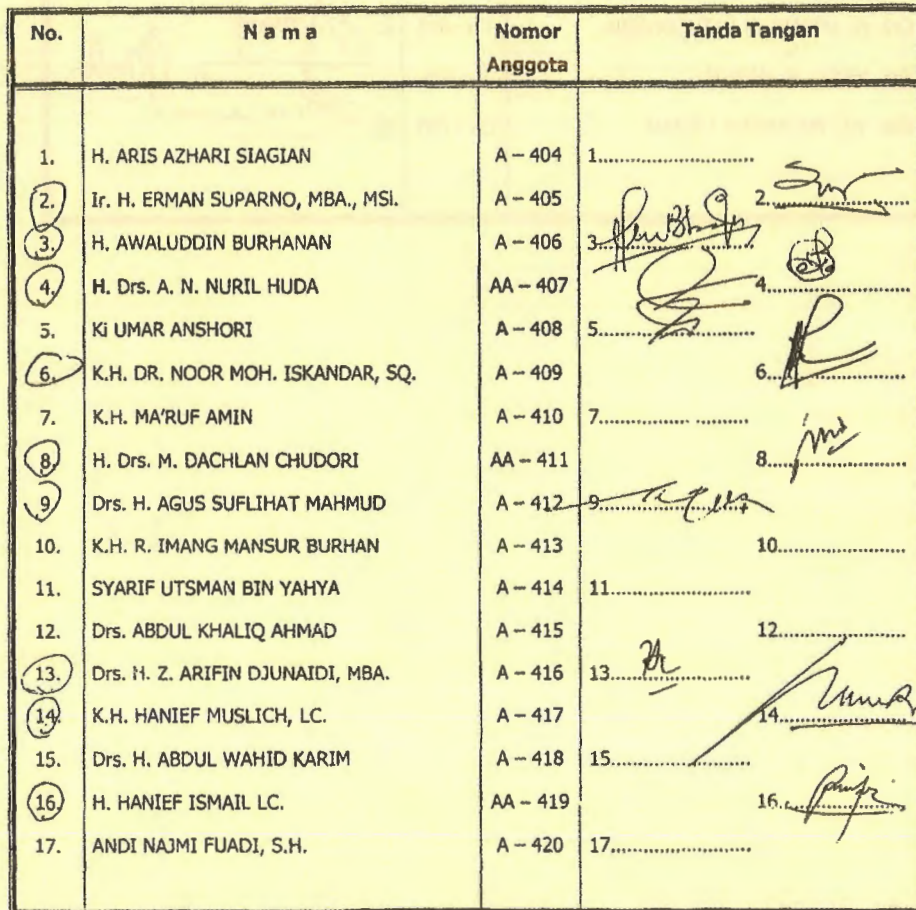 No. Nama Nomor Anggota Tanda Tangan
1. H. ARIS AZHARI SIAGIAN A – 404 1..........................
2. Ir. H. ERMAN SUPARNO, MBA., MSi. A – 405 2..........................
3. H. AWALUDDIN BURHANAN A – 406 3..........................
4. H. Drs. A. N. NURIL HUDA AA – 407 4..........................
5. Ki UMAR ANSHORI A – 408 5..........................
6. K.H. DR. NOOR MOH. ISKANDAR, SQ. A – 409 6..........................
7. K.H. MA'RUF AMIN A – 410 7..........................
8. H. Drs. M. DACHLAN CHUDORI AA – 411 8..........................
9. Drs. H. AGUS SUFLIHAT MAHMUD A – 412 9..........................
10. K.H. R. IMANG MANSUR BURHAN A – 413 10..........................
11. SYARIF UTSMAN BIN YAHYA A – 414 11..........................
12. Drs. ABDUL KHALIQ AHMAD A – 415 12..........................
13. Drs. H. Z. ARIFIN DJUNAIDI, MBA. A – 416 13..........................
14. K.H. HANIEF MUSLICH, LC. A – 417 14..........................
15. Drs. H. ABDUL WAHID KARIM A – 418 15..........................
16. H. HANIEF ISMAIL LC. AA – 419 16..........................
17. ANDI NAJMI FUADI, S.H. A – 420 17..........................